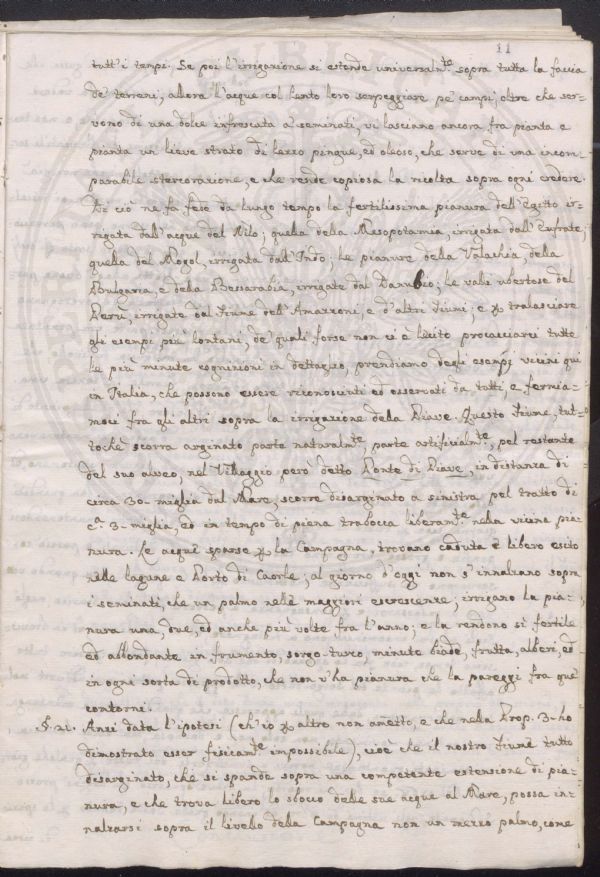 11
tutt'i tempi. Se poi l'irrigazione si estende universalm.te sopra tutta la faccia
de' terreni, allora l'acque col lento loro serpeggiare pe' campi, oltre che ser-
vono di una dolce infrescata a' seminati, vi lasciano ancora fra pianta e
pianta un lieve strato di lezzo pingue, ed oleoso, che serve di una incom-
parabile stercorazione, e che rende copiosa la ricolta sopra ogni credere.
Di ciò ne fa fede da lungo tempo la fertilissima pianura dell'Egitto ir-
rigata dall'acque del Nilo; quella della Mesopotamia, irrigata dall'Eufrate;
quella del Mogol, irrigata dall'Indo; le pianure della Valachia, della
Bulgaria, e della Bessarabia, irrigate dal Danubio; le valli ubertose del
Perù, irrigate dal Fiume dell'Amazzoni, e d'altri Fiumi; e p tralasciare
gli esempi più lontani, de' quali forse non ci è lecito procacciarci tutte
le più minute cognizioni in dettaglio, prendiamo degli esempj vicini qui
in Italia, che possono essere riconosciuti ed osservati da tutti, e fermia-
moci fra gli altri sopra la irrigazione della Piave. Questo Fiume, tut-
tochè scorra arginato parte naturalm.te, parte artificialm.te, pel restante
del suo alveo, nel Villaggio però detto Ponte di Piave, in distanza di
circa 30 miglia dal Mare, scorre disarginato a sinistra pel tratto di
c.a 3 miglia, ed in tempo di piena trabocca liberam.te nella vicina pia-
nura. Le acque sparse p la Campagna, trovano caduta e libero esito
nelle lagune e Porto di Caorle; al giorno d'oggi non s'innalzano sopra
i seminati, che un palmo nelle maggiori escrescenze; irrigano la pia-
nura una, due, ed anche più volte fra l'anno; e la rendono sì fertile
ed abbondante in frumento, sorgo-turco, minute biade, frutta, alberi, ed
in ogni sorta di prodotto, che non v'ha pianura che la pareggi fra que'
contorni.
§. 21. Anzi data l'ipotesi (ch'io p altro non ametto, e che nella Prop. 3. ho
dimostrato esser fisicam.te impossibile), cioè che il nostro Fiume tutto
disarginato, che si spande sopra una competente estensione di pia-
nura, e che trova libero lo sbocco delle sue acque al Mare, possa in-
nalzarsi sopra il livello della Campagna non un mezzo palmo, come